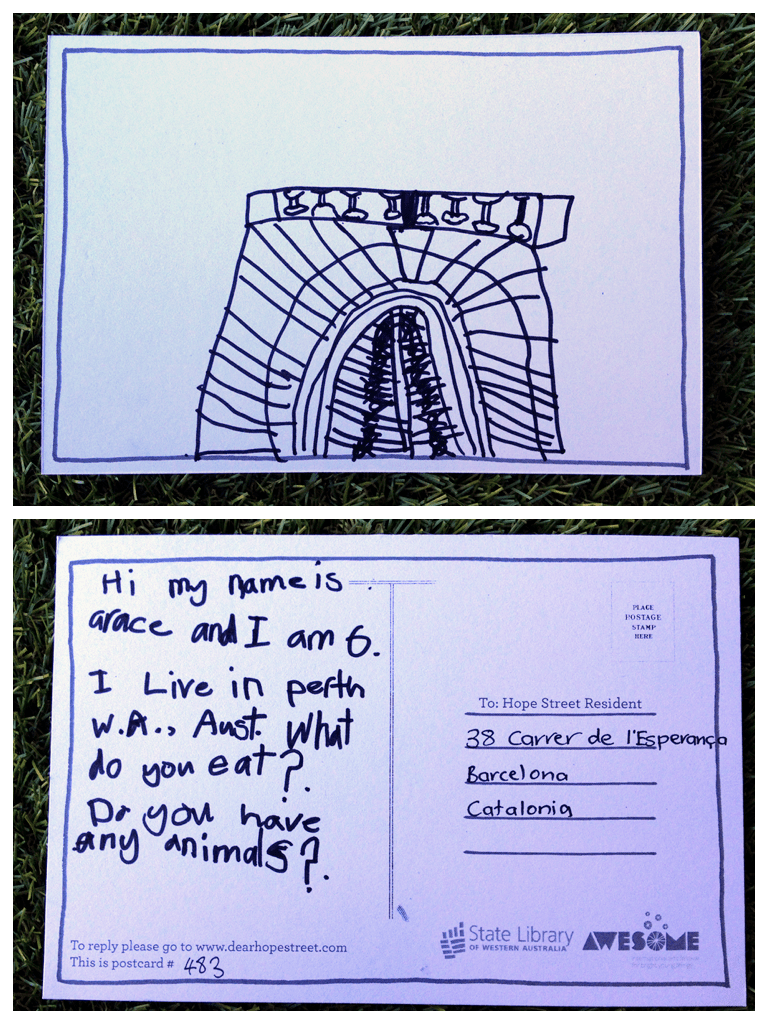 Hi my name is
grace and I am 6.
I Live in perth
W.A., Aust. What
do you eat?.
Do you have
any animals?.
To reply please go to www.dearhopestreet.com
This is postcard # 483
PLACE
POSTAGE
STAMP
HERE
To: Hope Street Resident
38 Carrer de l'Esperança
Barcelona
Catalonia
State Library
OF WESTERN AUSTRALIA
AWESOME